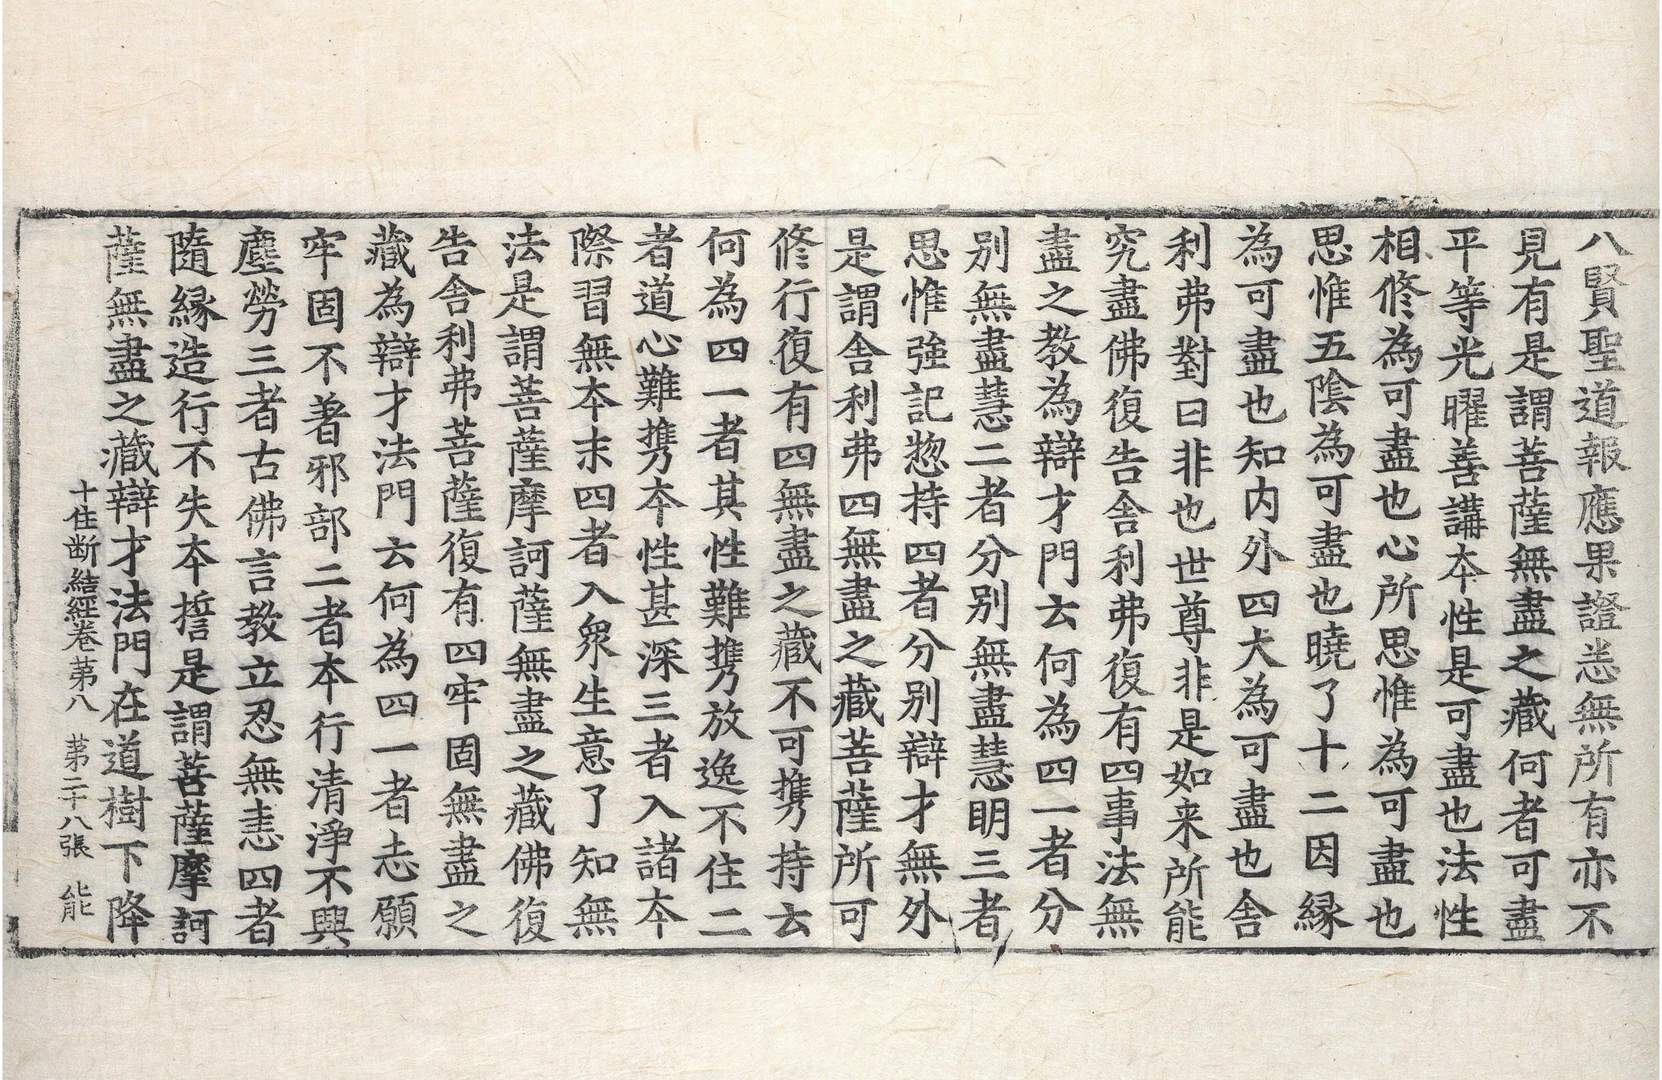 八賢聖道報應果證悉無所有亦不
見有是謂菩薩無盡之藏何者可盡
平等光曜善講本性是可盡也法性
相修為可盡也心所思惟為可盡也
思惟五陰為可盡也曉了十二因緣
為可盡也知内外四大為可盡也舍
利弗對曰非也世尊非是如来所能
究盡佛復告舍利弗復有四事法無
盡之教為辯才門云何為四一者分
別無盡慧二者分別無盡慧明三者
思惟強記惣持四者分別辯才無外
是謂舍利弗四無盡之藏菩薩所可
修行復有四無盡之藏不可攜持云
何為四一者其性難攜放逸不住二
者道心難攜本性甚深三者入諸本
際習無本末四者入衆生意了知無
法是謂菩薩摩訶薩無盡之藏佛復
告舍利弗菩薩復有四牢固無盡之
藏為辯才法門云何為四一者志願
牢固不著邪部二者本行清淨不興
塵勞三者古佛言教立忍無恚四者
隨緣造行不失本誓是謂菩薩摩訶
薩無盡之藏辯才法門在道樹下降
十住断結經卷第八 第二十八張 能